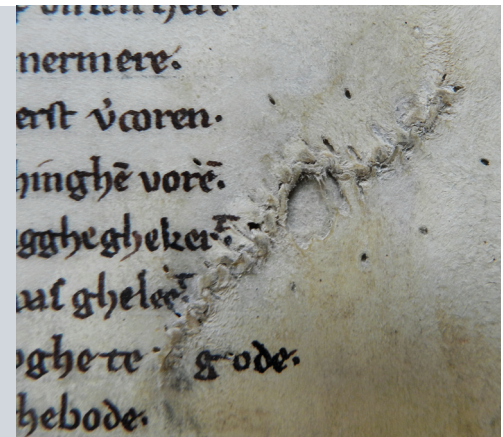 nermere.
erst v̉coren.
hinghē vorē.
gghegheker
ſ ghelee
oghe te gode.
hebode.